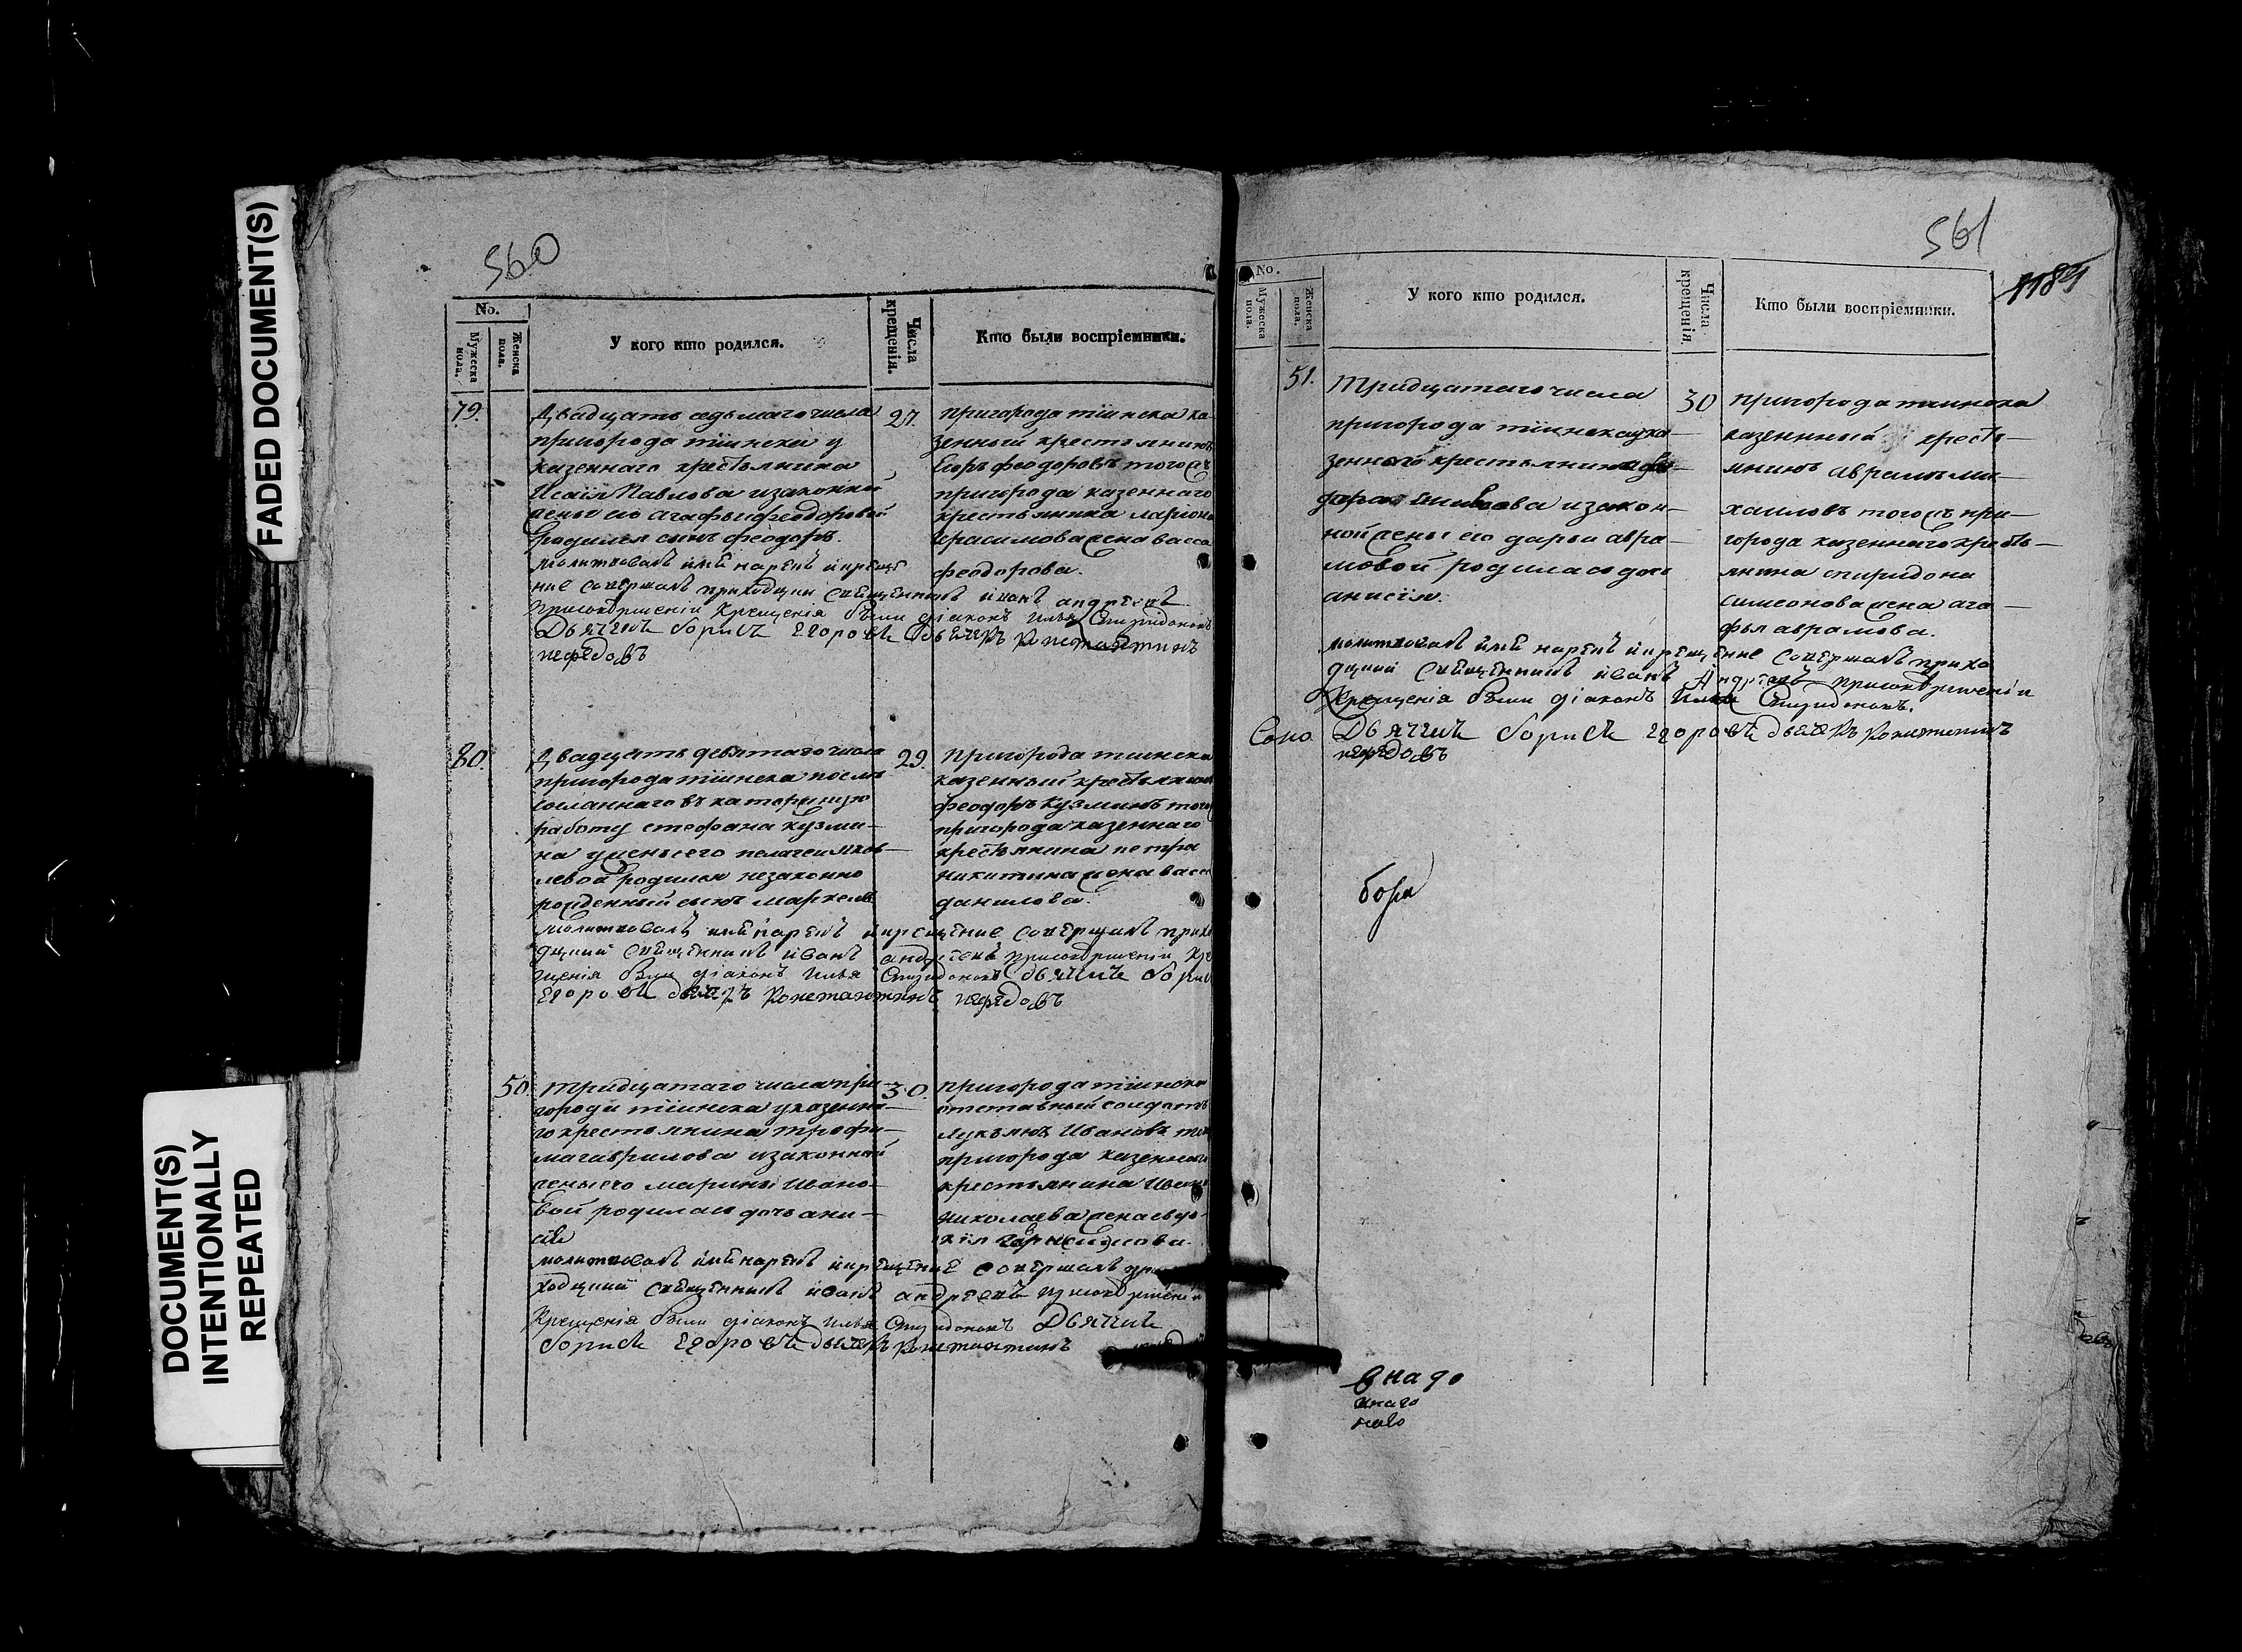 FADED DOCUMENT(S)
DOCUMENT(S)
INTENTIONALLY
REPEATED
560
No.
Мужеска пола.
Женска пола.
У кого кто родился.
Числа крещенія.
Кто были воспріемники.
79.
Двадцать седьмаго числа
пригорода тіинска у
казеннаго крестьянина
Исаія Павлова и законной
жены его агафьи феодоровой
родился сынъ феодоръ.
молитвовалъ имя нарекъ и креще
ние совершалъ приходцкий священникъ иванъ андреевъ
при совершении крещения были диаконъ илья Спиридоновъ
Дьячикъ борисъ егоровъ дьячекъ константинъ
нефедовъ
27.
пригорода тіинска ка
зенный крестьянинъ
Егоръ феодоровъ тогожъ
пригорода казеннаго
крестьянина лариона
Герасимова жена васса
феодорова.
80.
Двадцать девятаго числа
пригорода тіинска послѣ
сосланнаго въ каторжную
работу стефана кузми-
на у жены его пелагеи яков-
левой родился незаконно
рожденный сынъ маркелъ
молитвовалъ имя нарекъ и крещение совершалъ прихо
дцкий священникъ иванъ андреевъ при совершении кре
щения были диаконъ илья Спиридоновъ дьячикъ борисъ
егоровъ дьячекъ константинъ нефедовъ
29.
пригорода тіинска
казенный крестьянинъ
феодоръ кузминъ того
пригорода казеннаго
крестьянина петра
никитина жена васса
данилова.
50.
тридцатаго числа при-
города тіинска у казенна-
го крестьянина трофи-
ма гаврилова и законной
жены его марины ивано-
вой родилась дочь ани-
сія
молитвовалъ имя нарекъ и крещение совершалъ при
ходцкий священникъ иванъ андреевъ при совершении
Крещения были диаконъ илья Спиридоновъ Дьячикъ
борисъ егоровъ дьячекъ константинъ
30.
пригорода тіинска
отставный солдатъ
лукьянъ Ивановъ
пригорода казеннаго
крестьянина Ивана
николаева жена евдо-
кія
561
1184
No.
Мужеска пола.
Женска пола.
У кого кто родился.
Числа крещенія.
Кто были воспріемники.
51.
тридцатаго числа
пригорода тіинска у ка-
зеннаго крестьянина
и закон-
ной жены его дарьи авра-
мовой родилась дочь
анисія.
молитвовалъ имя нарекъ и крещение совершалъ прихо
дцкий священникъ иванъ Андреевъ при совершении
Крещения были диаконъ Илья Спиридоновъ.
Дьячикъ борисъ егоровъ дьячекъ константинъ
нефедовъ
30
пригорода тіинска
казенный кресть-
янинъ аврамъ ми-
хаиловъ тогожъ при-
города казеннаго кресть-
янина спиридона
симеонова жена ага-
фья аврамова.